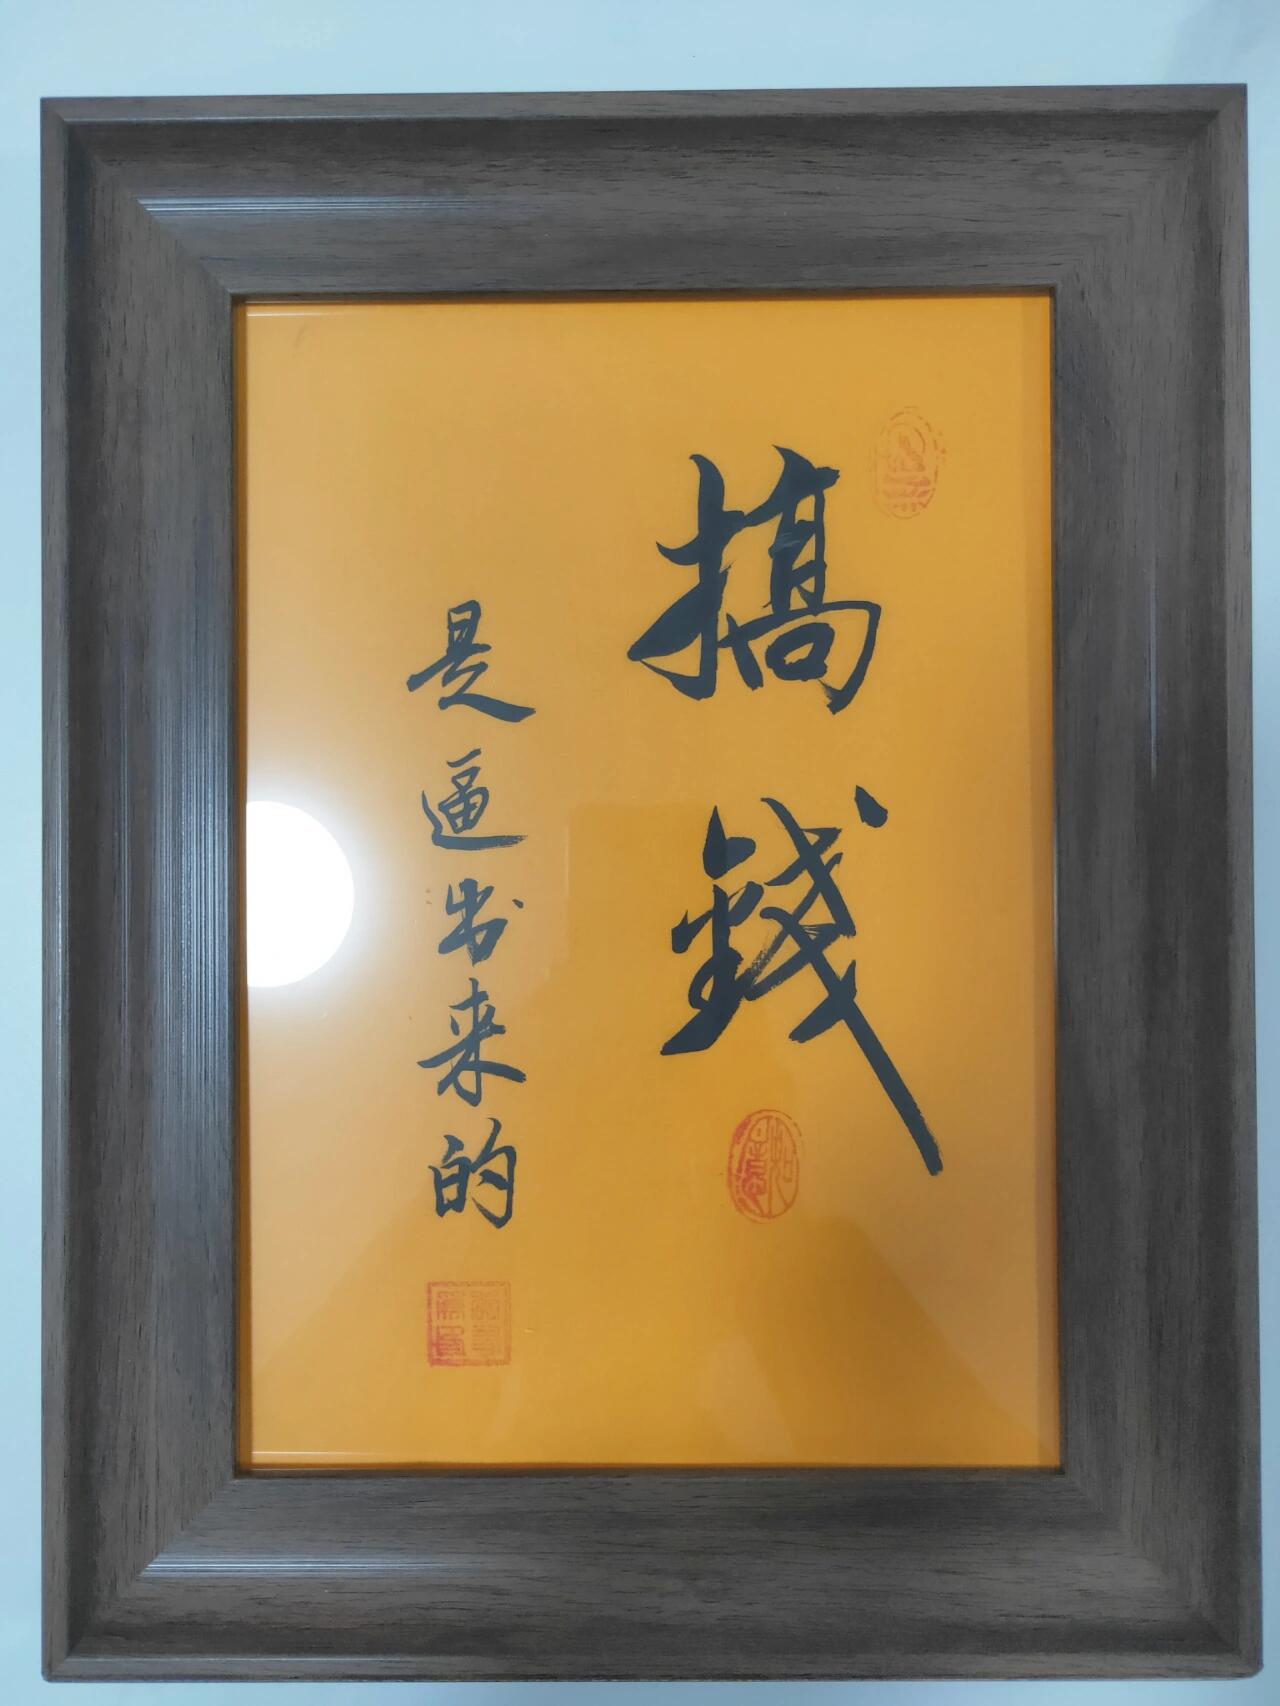 搞錢
是逼出来的